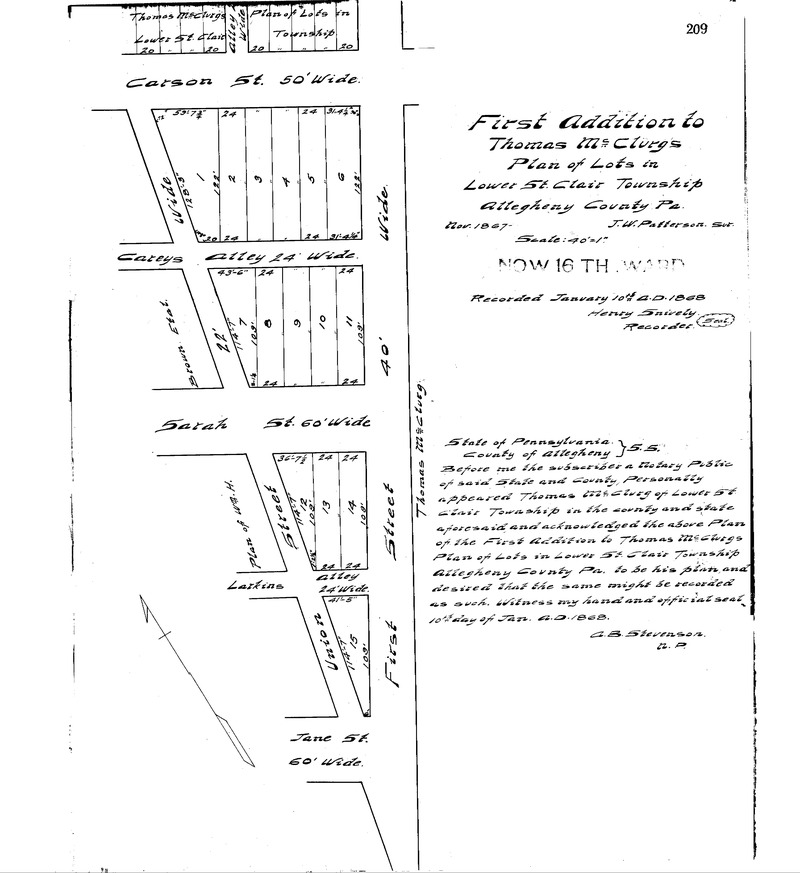 209
Thomas McClurgs Plan of Lots in
Lower St. Clair Township
Alley
Wide
20 " " 20 20 " " 20
Carson St. 50' Wide.
53'-7¾" 24 " " 24
1 2 3 4 5 6
128'-3" 122' 122'
20 24 " " 24 31'-4¼"
Wide
Careys Alley 24' Wide.
43'-6" 24 " " 24
7 8 9 10 11
114'-7" 109' 109'
24 " " 24
Brown Etal.
22'
Wide.
40'
Sarah St. 60' Wide
36'-7½" 24 24
12 13 14
114'-7" 109' 109'
24 24
Plan of Wm. H.
Street
Larkins Alley
24' Wide.
41'-5"
15
114'-7" 109'
Union
First Street
Jane St.
60' Wide.
Thomas McClurg.
First Addition to
Thomas McClurgs
Plan of Lots in
Lower St. Clair Township
Allegheny County Pa.
Nov. 1867- J.W. Patterson. Sur.
Scale: 40'=1".
NOW 16 TH. WARD
Recorded January 10th A.D. 1868
Henry Snively.
Recorder. Seal
State of Pennsylvania.
County of Allegheny } S.S.
Before me the subscriber a Notary Public
of said State and County, Personally
appeared Thomas McClurg of Lower St
Clair Township in the county and state
aforesaid and acknowledged the above Plan
of the First Addition to Thomas McClurgs
Plan of Lots in Lower St. Clair Township
Allegheny County Pa. to be his plan, and
desired that the same might be recorded
as such. Witness my hand and official seal,
10th day of Jan. A.D. 1868.
C.B. Stevenson.
N.P.